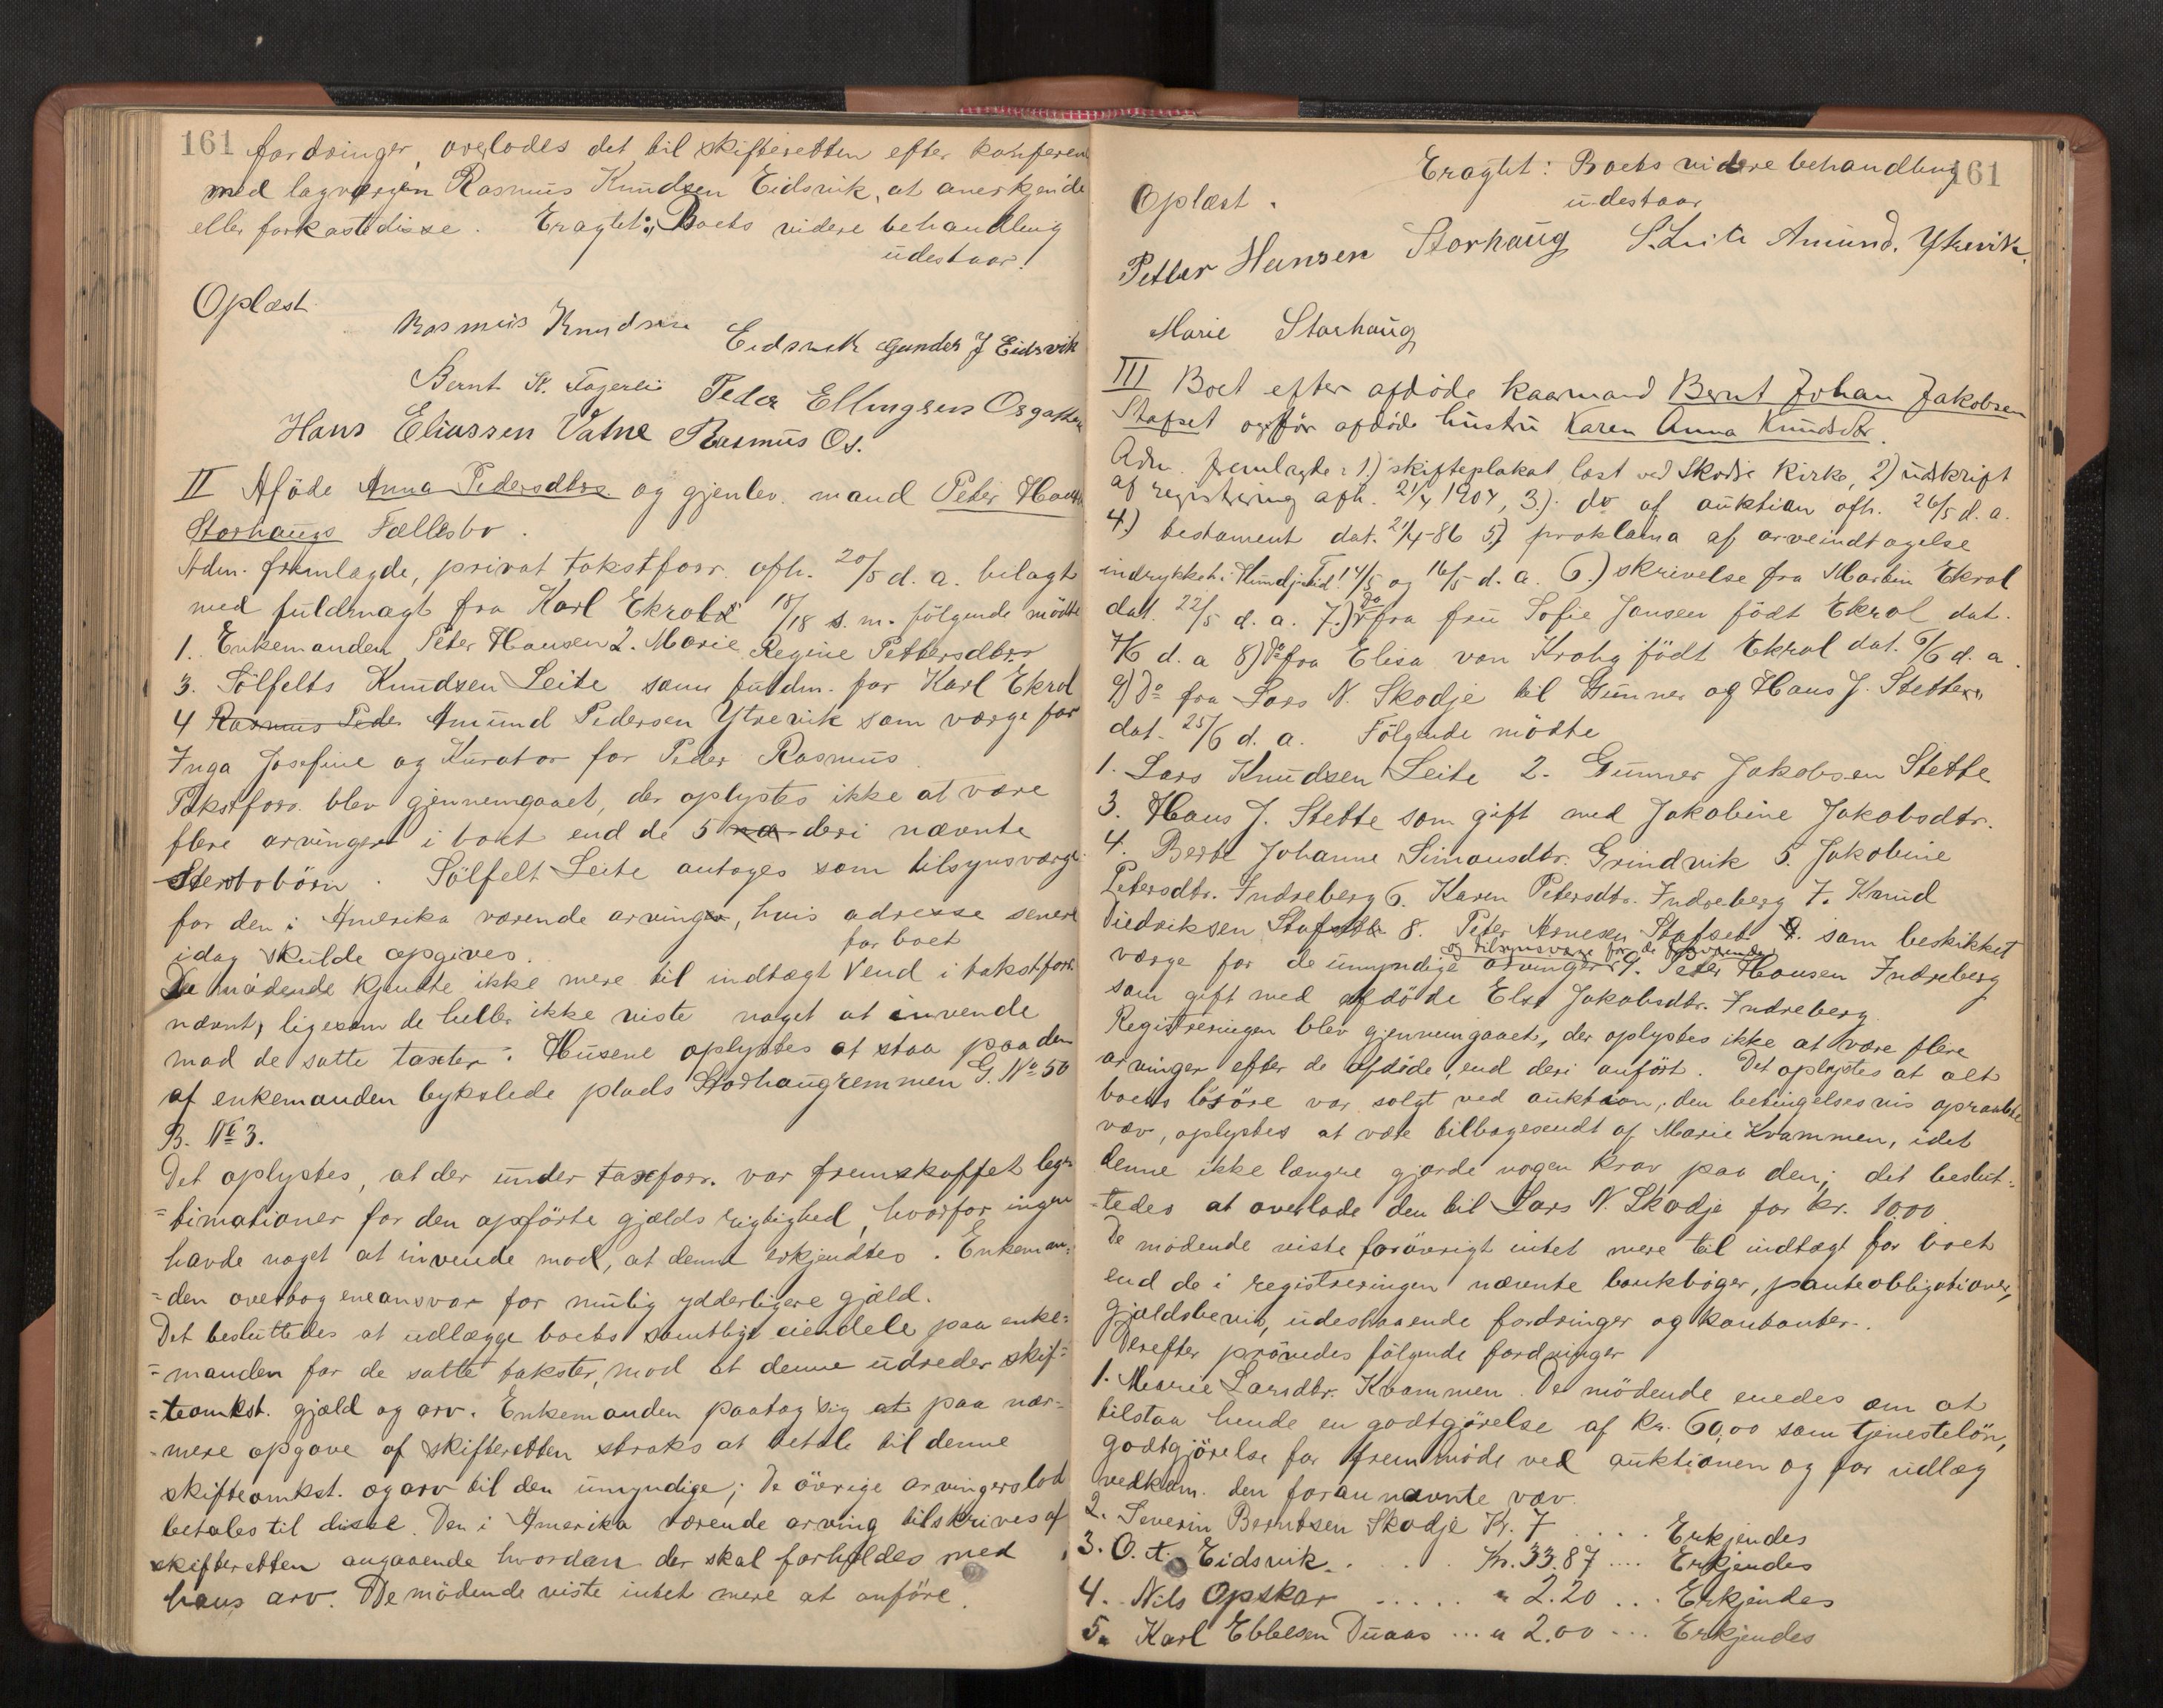 161 fordringer, overlodes det til skifteretten efter konferen
med lagvergen Rasmus Knudsen Eidsvik, at anerkjende
eller forkaste disse. Eragtet: Boets videre behandling
udestaar!
Oplæst
Rasmus Knudsen Eidsvik Gunder J Eidsvik
Bernt St. Fagerli Peder Ellingsen Osgaften
Hans Eliassen Vatne Rasmus Os.
II Aføde Anna Pedersdtrs. og gjenlev. mand Peter Hans
Storhaugs Fællesbo.
Adm. fremlagde, privat takstforr. afh. 20/5 d. a. bilagt
med fuldmagt fra Karl Ekrol 18/18 s. m. følgende mødte
1. Enkemanden Peter Hansen 2. Marie Regine Pettersdtr
3. Sölfelts Knudsen Leite som fuldm. for Karl Ekrol
4 Rasmus Peder Amund Pedersen Ytrevik som værge for
Inga Josefine og Kurator for Peder Rasmus.
Takstforr. blev gjennemgaaet, der oplystes ikke at være
flere arvinger i boet end de 5 næ deri nævnte
Sterbobörn. Sölfelt Leite antoges som tilsynsværge
for den i Amerika værende arving, hvis adresse senere
idag skulde opgives.
for boet
De mødende kjendte ikke mere til indtægt V end i takstforr.
nævnt, ligesom de heller ikke viste noget at invende
mod de satte taxter. Husene oplystes at staa paa den
af enkemanden bykslede plads Storhaugremmen G. No 50
B. No 3.
Det oplystes, at der under taxforr. var fremskaffet legi
=timationer for den opførte gjælds rigtighed, hvorfor ingen
havde noget at invende mod, at denne erkjendtes. Enkeman=
=den overtog eneansvar for mulig ydderligere gjæld.
Det besluttedes at udlægge boets samtlige eiendele paa enke=
=manden for de satte takster, mod at denne udreder skif=
=teomkst. gjæld og arv. Enkemanden paatog sig at paa nær=
=mere opgave af skifteretten straks at betale til denne
skifteomkst. og arv til den umyndige; De øvrige arvingers lod
betales til disse. Den i Amerika værende arving tilskrives af
skifteretten angaaende hvordan der skal forholdes med
hans arv. De mødende viste intet mere at anføre.
Eragtet: Boets videre behandling 161
udestaar
Oplæst.
Petter Hansen Storhaug S. Leite Amund. Ytrevik.
Marie Storhaug
III Boet efter afdøde kaarmand Bernt Johan Jakobsen
Stafset og før afdøde hustru Karen Anna Knudsdtr.
Adm. fremlagde: 1.) skifteplakat læst ved Skodje Kirke, 2) udskrift
af registrering afh. 21/4 1904, 3.) do af auktion afh. 26/5 d. a.
4.) testament dat. 21/4-86 5) proklama af arveindtagelse
indrykket i Kundgj. tid. 14/5 og 16/5 d. a. 6.) skrivelse fra Martin Ekrol
dat. 22/5 d. a. 7.) do fra fru Sofie Jansen født Ekrol dat.
7/6 d. a 8) do fra Elisa von Krohg født Ekrol dat. 6/6 d. a.
9) Do fra Lars N. Skodje til Gunner og Hans J. Stette
dat. 25/6 d. a. Følgende mødte
1. Lars Knudsen Leite 2. Gunner Jakobsen Stette
3. Hans J. Stette som gift med Jakobine Jakobsdtr.
4. Berte Johanne Simonsdtr. Grindvik 5. Jakobine
Petersdtr. Indreberg 6. Karen Petersdtr. Indreberg 7. Knud
Diedriksen Stafset 8. Peter Arnesen Stafset 9. som beskikket
og tilsynsværge for de fraværende
værge for de umyndige arvinger 9. Peter Hansen Indreberg
som gift med afdøde Else Jakobsdtr. Indreberg.
Registreringen blev gjennemgaaet, der oplystes ikke at være flere
arvinger efter de afdøde, end deri anført. Det oplystes at alt
boets løsøre var solgt ved auktion, den betingelsesvis opraabte
væv, oplystes at være tilbagesendt af Marie Kvammen, idet
denne ikke længre gjorde nogen krav paa den; det beslut=
=tedes at overlade den til Lars N. Skodje for kr. 10.00
De mødende viste forøvrigt intet mere til indtægt for boet
end de i registreringen nævnte bankbøger, panteobligationer,
gjældsbevis, udestaaende fordringer og kontanter.
Derefter prøvedes følgende fordringer
1. Marie Larsdtr. Kvammen. De mødende enedes om at
tilstaa hende en godtgjørelse af Kr. 60,00 som tjenesteløn,
godtgjörelse for fremmøde ved auktionen og for udlæg
vedkom. den forannævnte væv.
2. Severin Berntsen Skodje Kr. 7 .... Erkjendes
3. O. A. Eidsvik. . . . Kr. 33.87 .... Erkjendes
4. Nils Opskar ..... " 2.20 ... Erkjendes
5. Karl Ebbesen Duaas ... " 2.00 ... Erkjendes